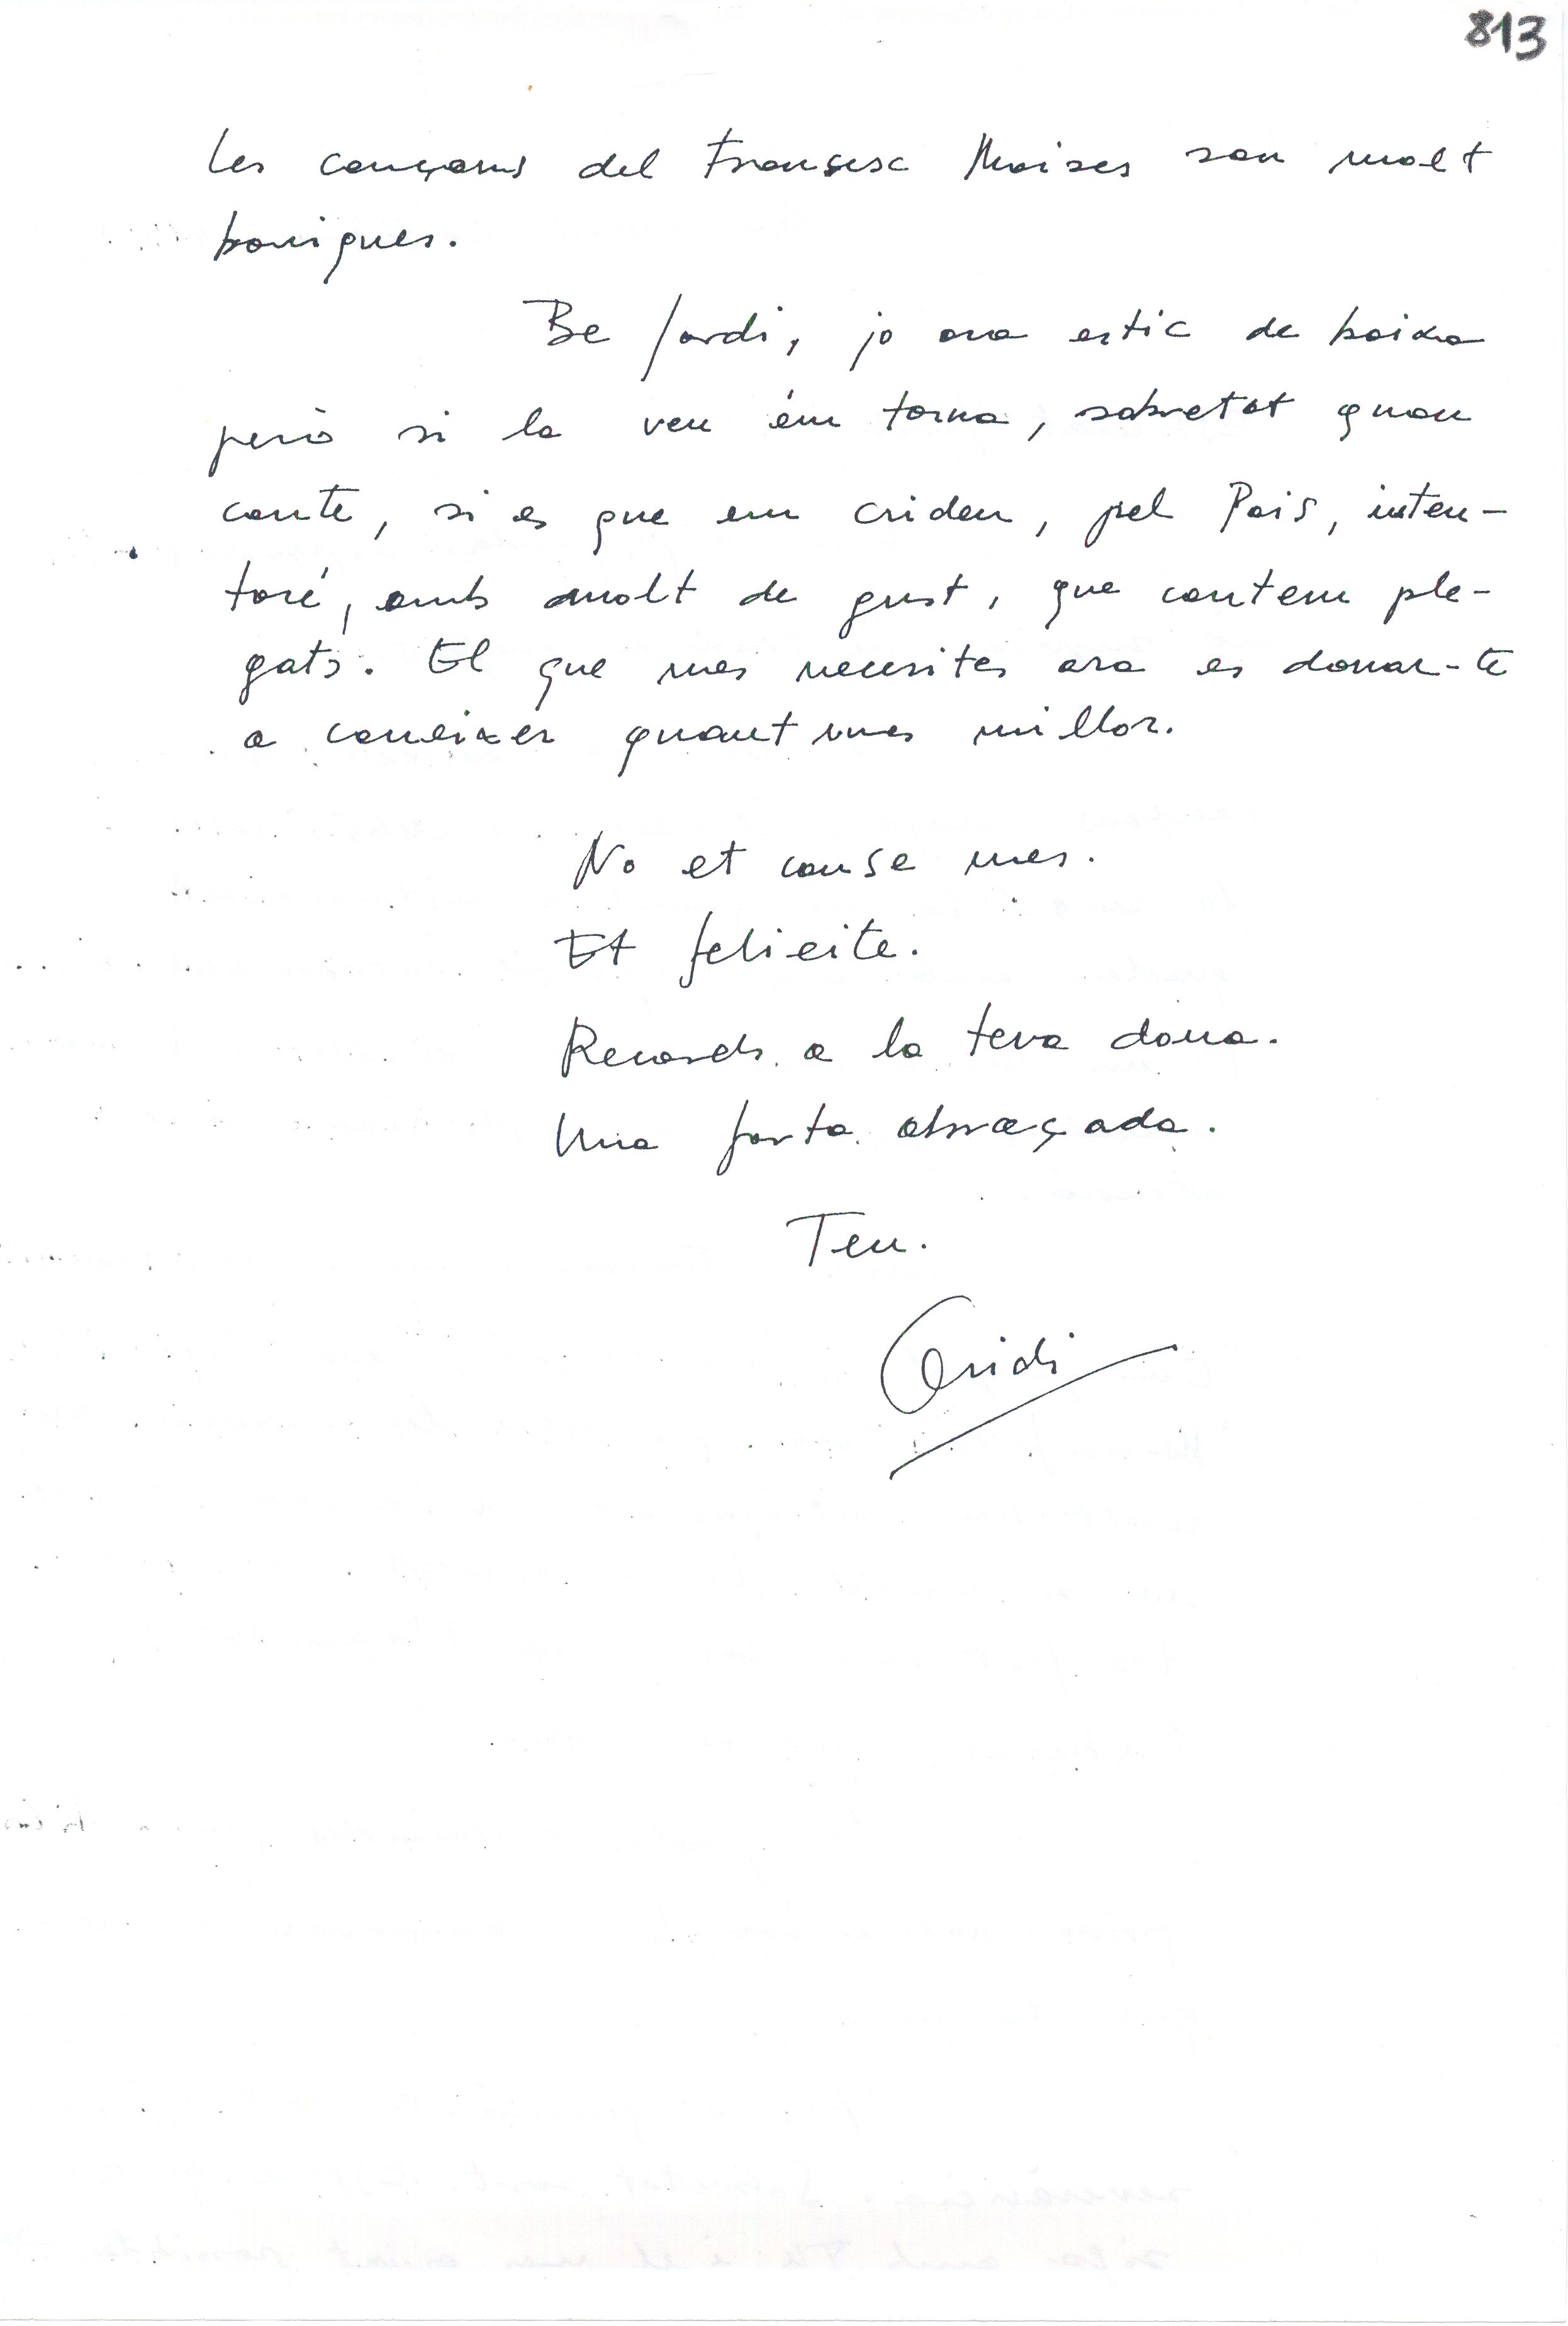 813
les cançons del Francesc Moises son molt
boniques.
Be Jordi, jo ara estic de baixa
però si la veu ém torna, sobretot quan
cante, si es que em criden, pel Pais, inten-
taré, amb molt de gust, que cantem ple-
gats. El que mes necesites ara es donar-te
a coneixer quant mes millor.
No et canse mes.
Et felicite.
Records a la teva dona.
Una forta abraçada.
Teu.
Ovidi